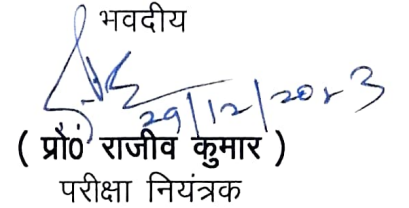 भवदीय
29/12/2023
( प्रो0ं राजीव कुमार )
परीक्षा नियंत्रक